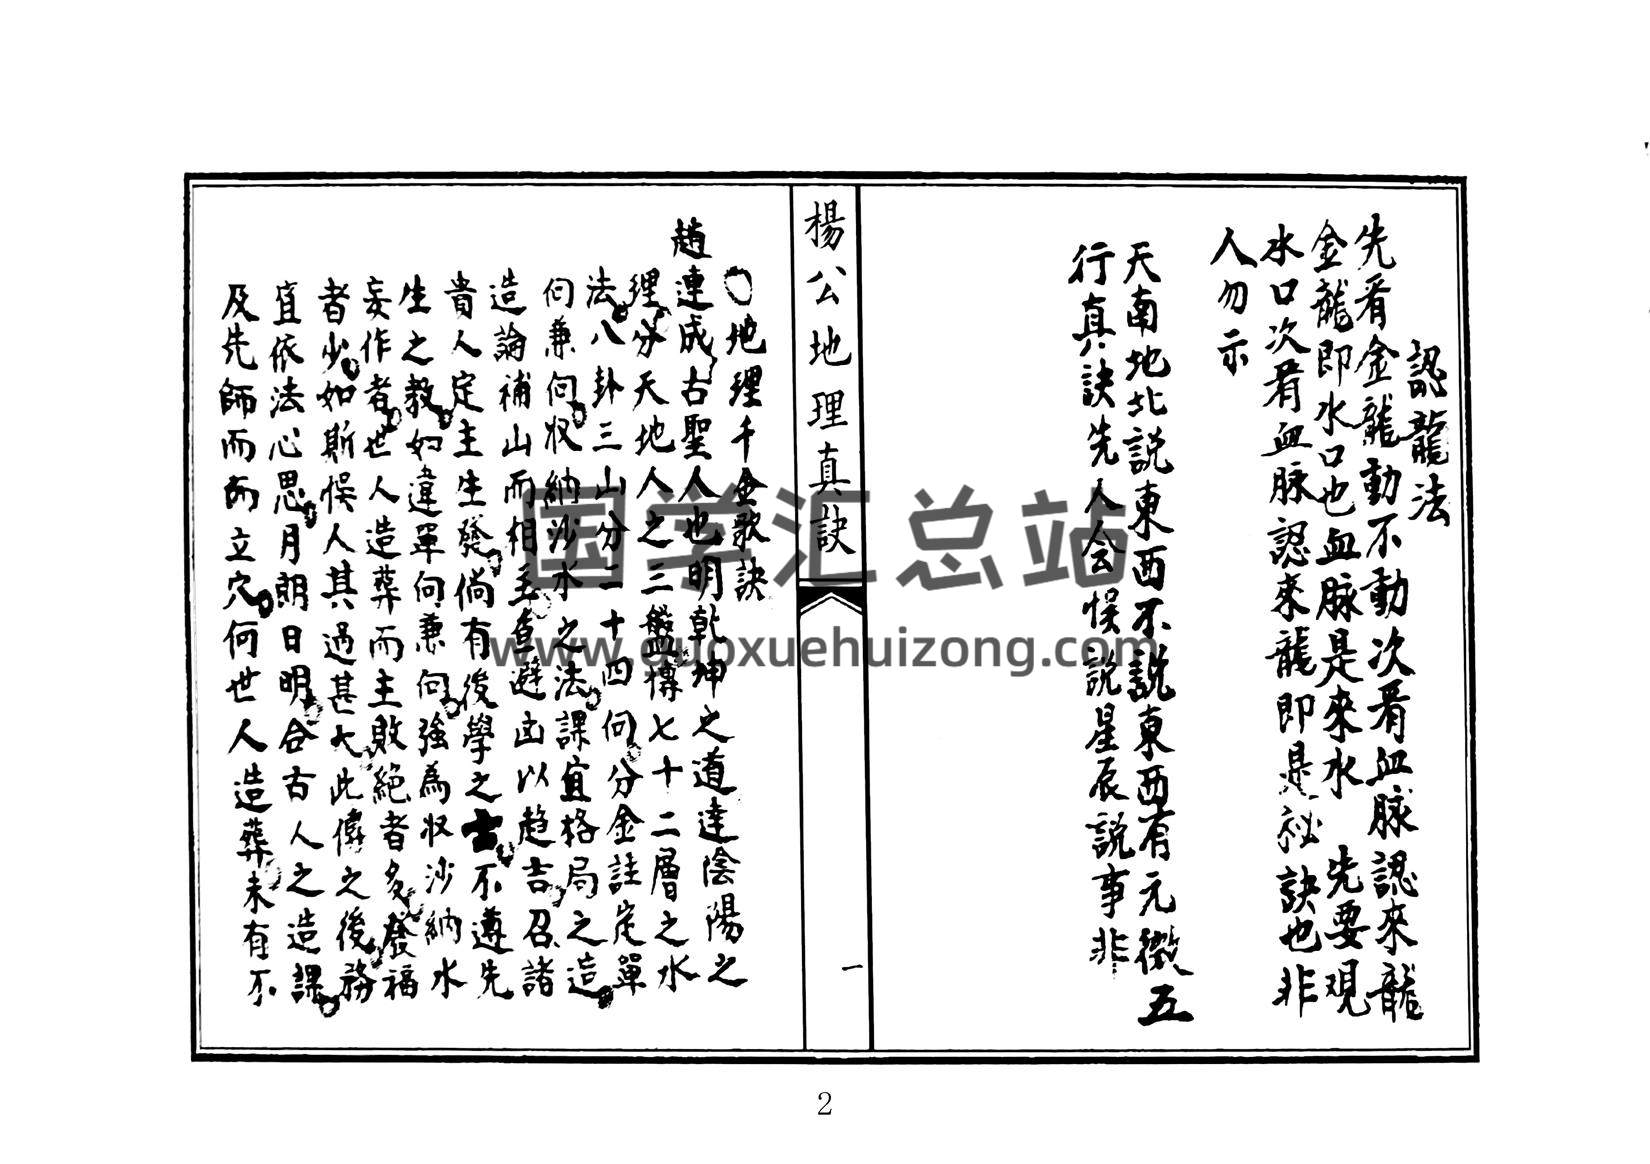 認龍法
先看金龍動不動次看血脉認來龍
金龍即水口也血脉是來水 先要观
水口次看血脉認來龍即是秘訣也非
人勿示
天南地北説東西不説東西有元微五
行真訣先人会悮説星辰説事非
楊公地理真訣
一
〇地理千金歌訣
趙連成古聖人也明乾坤之道達陰陽之
理分天地人之三盤博七十二層之水
法八卦三山分二十四向分金註定單
向兼向収納沙水之法課宜格局之造
造論補山而相主查避凶以趋吉召諸
貴人定主生發倘有後學之士不遵先
生之教如違單向兼向強為収沙納水
妄作者世人造葬而主敗絕者多發福
者少如斯悮人其過甚大此傳之後務
宜依法心思月朗日明合古人之造課
及先師而立穴何世人造葬未有不
国学汇总站
www.guoxuehuizong.com
2